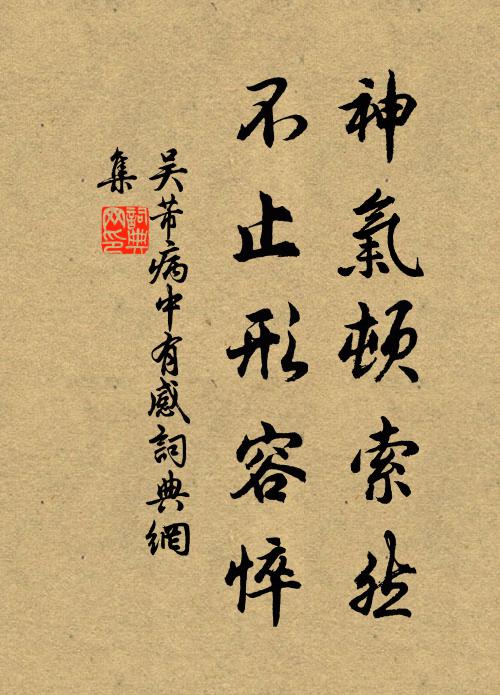 神氣頓索然
不止形容悴
吴芾病中有感詞典網
集
詞典
网印